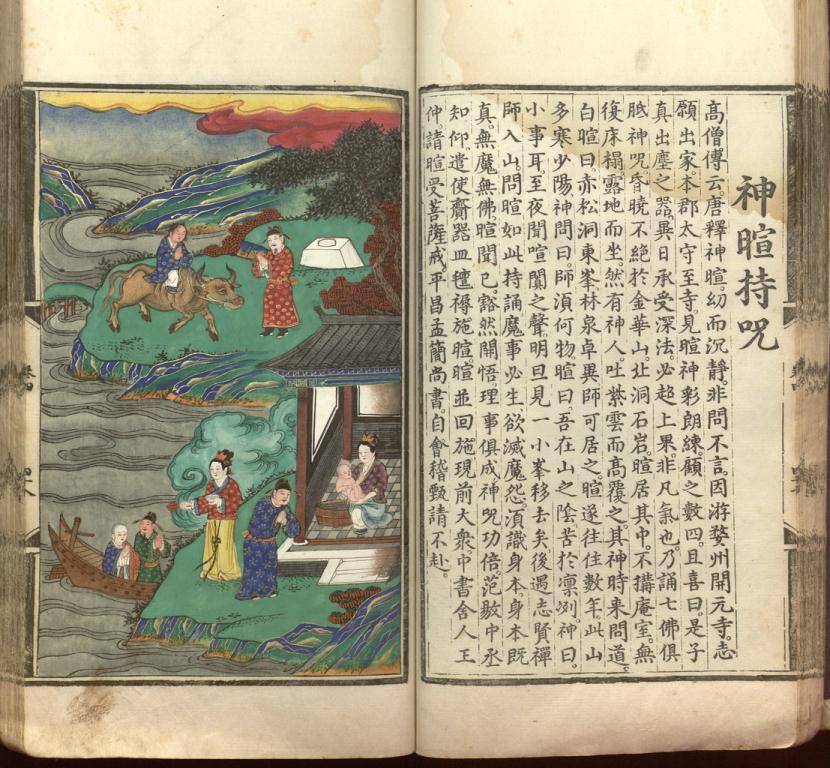 神暄持咒
高僧傳云。唐釋神暄。幼而沉靜。非問不言。因游婺州開元寺。志
願出家。本郡太守至寺。見暄神彩朗練。顧之數四。且喜曰。是子
真出塵之器。異日承受深法。必超上果。非凡氣也。乃誦七佛俱
胝神咒。昏曉不絕。於金華山。北洞石岩。暄居其中。不搆庵室。無
復床榻。露地而坐。然有神人吐紫雲而高覆之。其神時來問道。
白暄曰。赤松洞東峯。林泉卓異。師可居之。暄遂往住數年。此山
多寒少陽。神問曰。師湏何物。暄曰。吾在山之陰。苦於凛冽。神曰。
小事耳。至夜聞喧闐之聲。明旦見一小峯移去矣。後遇志賢禪
師入山。問暄如此持誦。魔事必生。欲滅魔怨。湏識身本。身本既
真。無魔無佛。暄聞已。豁然開悟。理事俱成。神咒功倍。范敭中丞
知仰。遣使齎器皿氊褥施暄。暄並回施現前大衆。中書舍人王
仲請暄受菩薩戒。平昌孟簡尚書。自會稽甄請不赴。